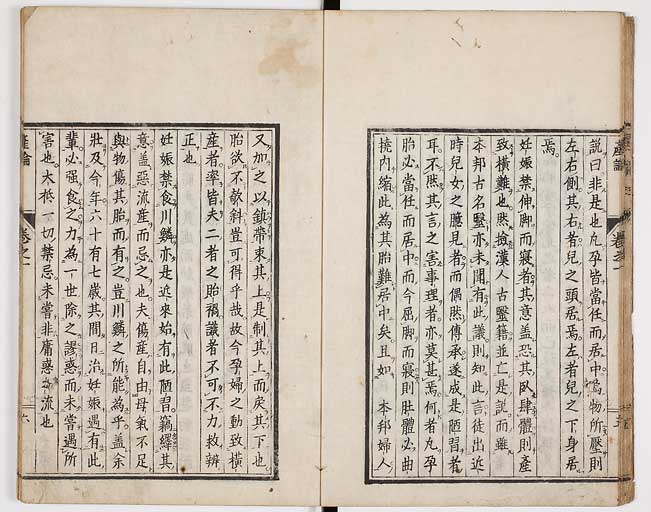 説曰非是也凡孕皆當任而居中為物所壓則
左右側其右者兒之頭居焉左者兒之下身居
焉
妊娠禁伸脚而寝者其意恐其臥肆體則產
致橫難也然撿漢人古醫籍並亡是説而雖
本邦古名醫亦未聞有此議則知此言徒出近
時兒女之臆見者而偶然傳承遂成是陋習者
耳不然其言之害事理者亦莫甚焉何者凡孕
胎必當任而居中而今屈脚而寝則肚體必曲
撓內縮此為其胎難居中矣且如 本邦婦人
産論
卷之一
又加之以鎮帶束其上是制其上而戾其下也
胎欲不欹斜豈可得乎哉故今孕婦之動致橫
產者率皆夫二者之胎禍讖者不可不力救辨
正也
妊娠禁食川鱗亦是近來始有此陋習竊繹其
意盖惡流産而忌之也夫傷産自由母氣不足
與物傷其胎而有之豈川鱗之所能為乎盖余
壯及今年六十有七歲其間日治妊娠遇有此
輩必强食之力為一世除之謬惑而未嘗遇所
害也大柢一切禁忌未嘗非庸惑之流也
産論
卷之一
六